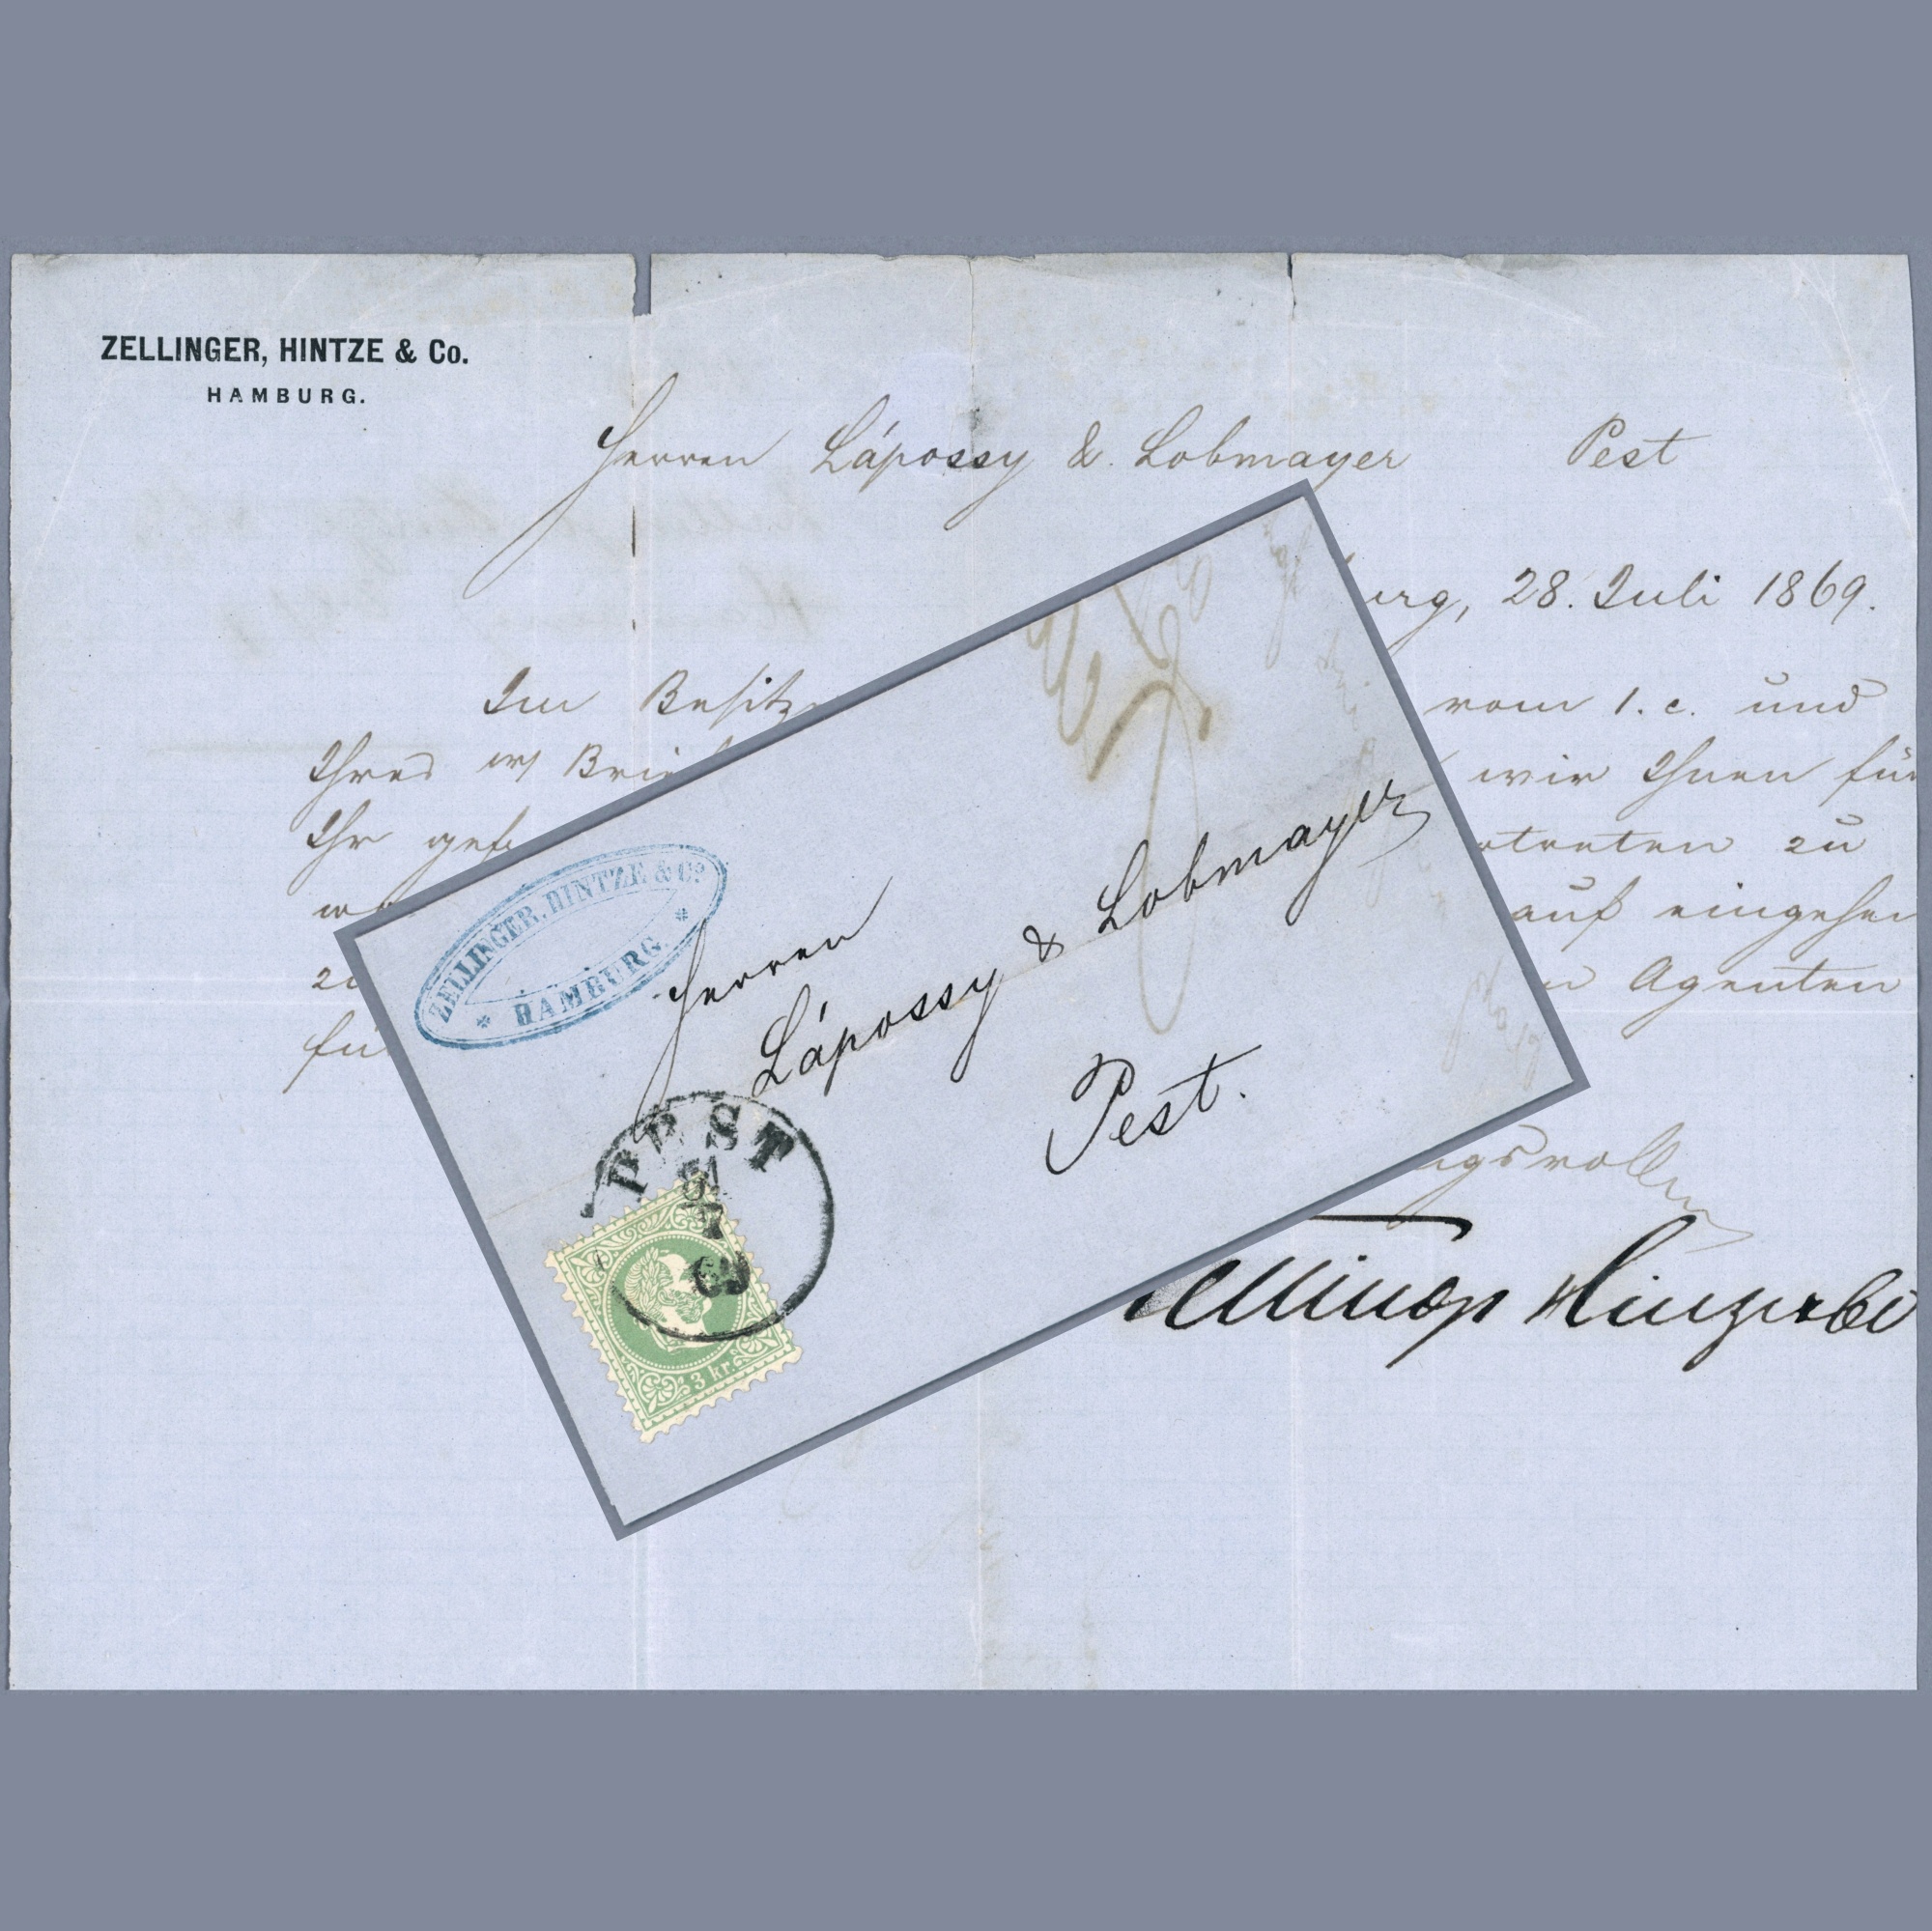 ZELLINGER, HINTZE & Co.
HAMBURG.
Herren Lápossy & Lobmayer Pest
urg, 28. Juli 1869.
Im Besitze vom 1. c. und
Ihres w/ Brie wir Ihnen für
Ihr gef. treten zu
auf eingehen
zu n Agenten
fü
ngsvoll
ZELLINGER, HINTZE & Co.
HAMBURG.
Herren
Lápossy & Lobmayer
Pest.
PEST
31
7
69
3 kr.